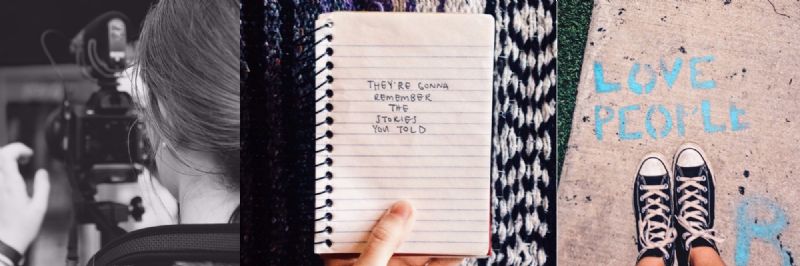 THEY'RE GONNA
REMEMBER
THE
STORIES
YOU TOLD
LOVE
PEOPLE
R